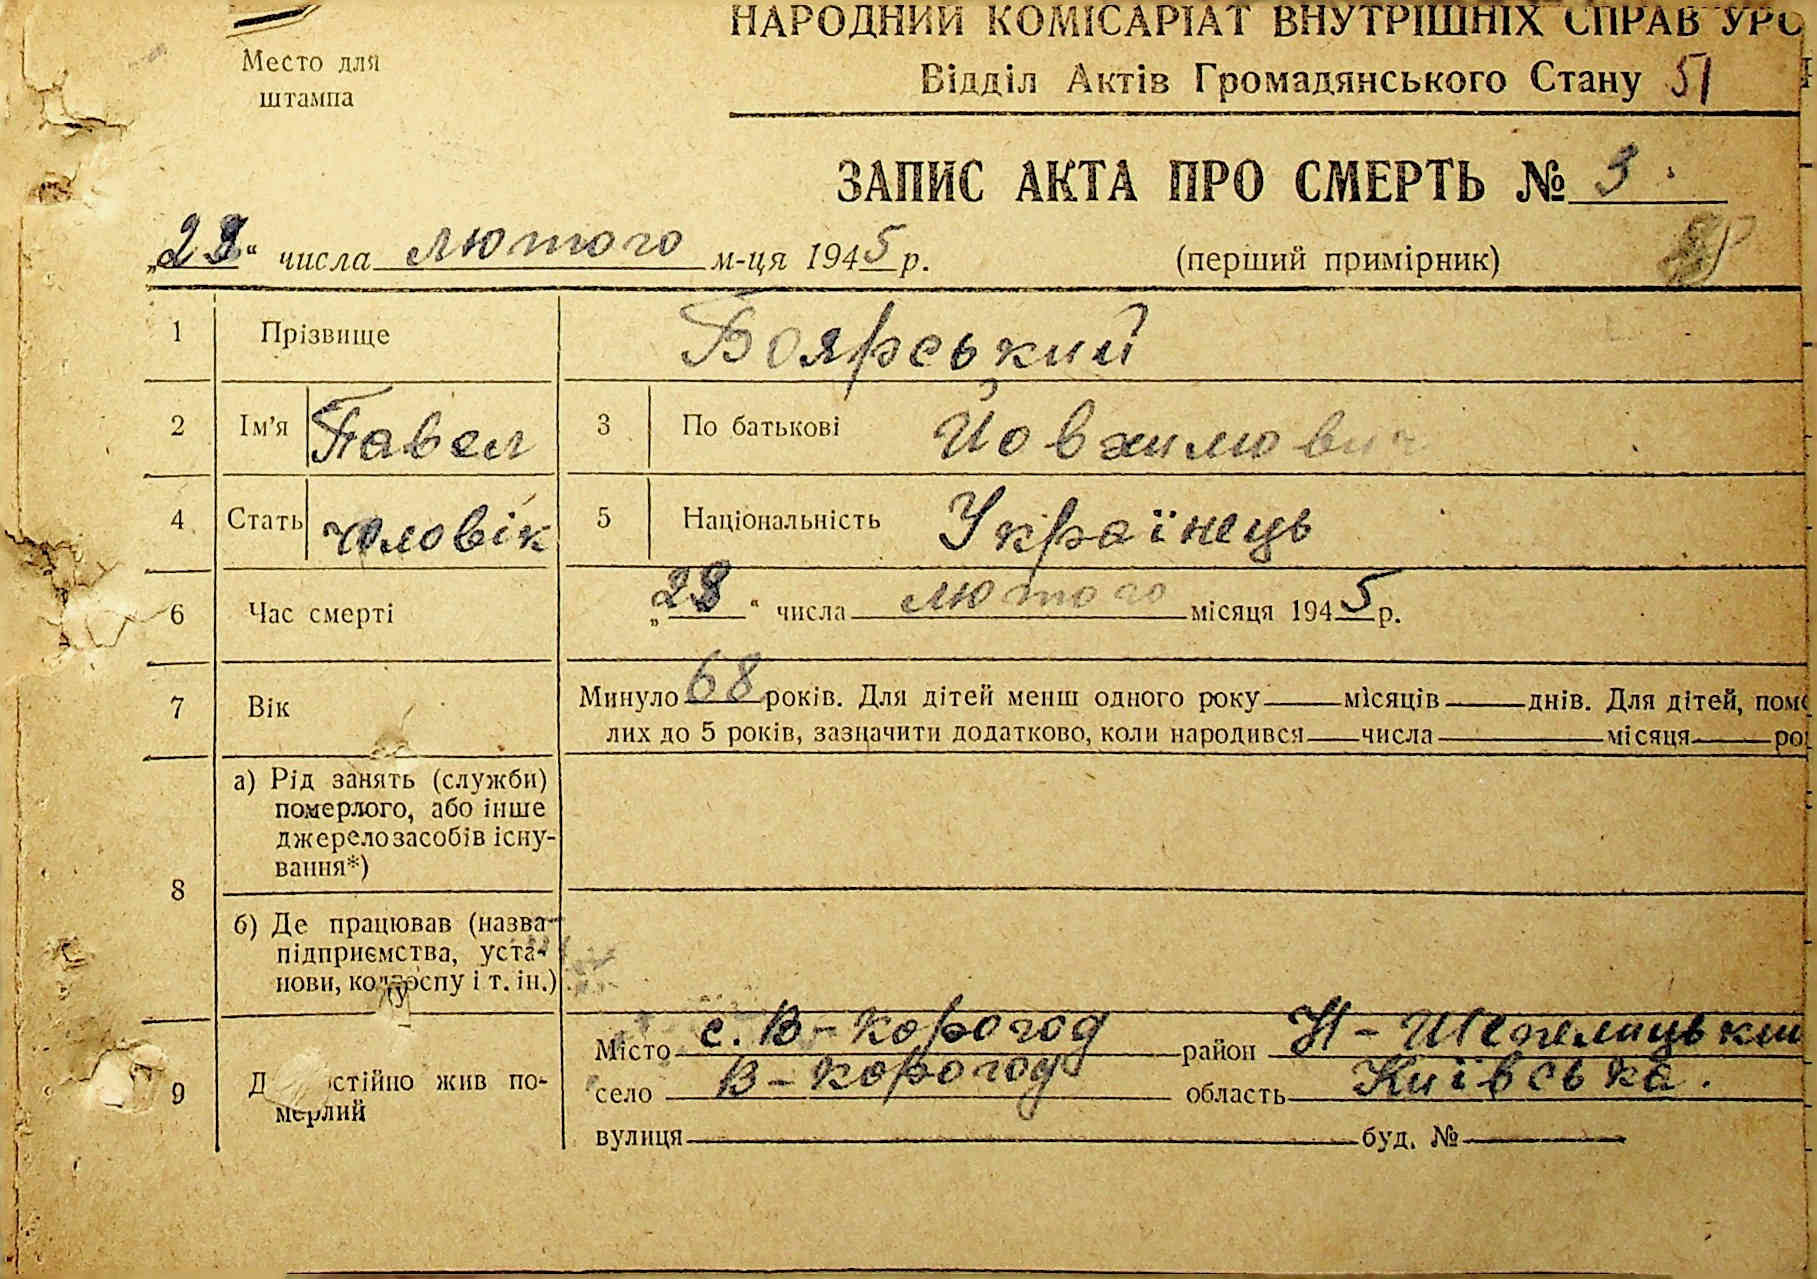 НАРОДНИЙ КОМІСАРІАТ ВНУТРІШНІХ СПРАВ УРС
Место для
штампа
Відділ Актів Громадянського Стану 51
ЗАПИС АКТА ПРО СМЕРТЬ № 3
„28“ числа лютого м-ця 1945 р. (перший примірник)
1 Прізвище Боярський
2 Ім'я Павел 3 По батькові Йовхимович
4 Стать чоловік 5 Національність Українець
6 Час смерті „28“ числа лютого місяця 1945 р.
7 Вік Минуло 68 років. Для дітей менш одного року місяців днів. Для дітей, поме
лих до 5 років, зазначити додатково, коли народився числа місяця ро
8 а) Рід занять (служби)
померлого, або інше
джерело засобів існу-
вання*)
б) Де працював (назва
підприємства, уста-
нови, колгоспу і т. ін.)
9 стійно жив по-
мерлий
Місто с. В-Корогод район Н-Шепелицький
село В-Корогод область Київська.
вулиця буд. №